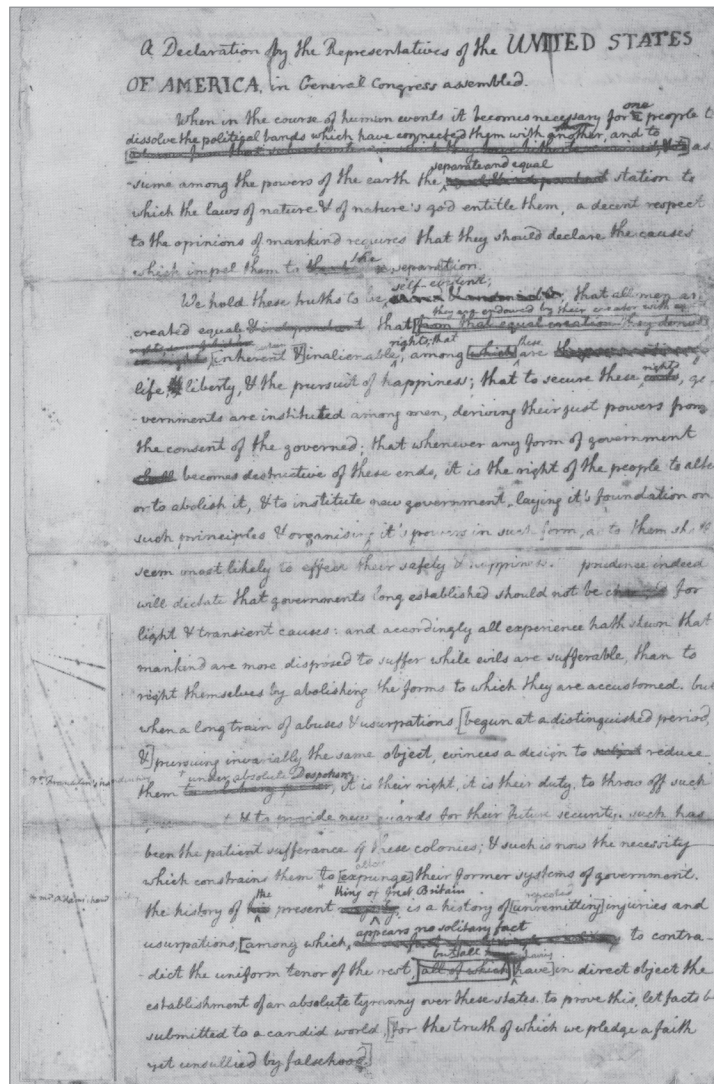 A Declaration by the Representatives of the UNITED STATES
OF AMERICA, in General Congress assembled.
When in the course of human events it becomes necessary for one people to
dissolve the political bands which have connected them with another, and to
as
separate and equal
-sume among the powers of the earth the station to
which the laws of nature & of nature's god entitle them, a decent respect
to the opinions of mankind requires that they should declare the causes
which impel them to the separation.
self-evident;
We hold these truths to be that all men are
they are endowed by their creator with
created equal & independent that from that equal creation they derive
rights; that these
inherent & inalienable, among which are
rights
life liberty, & the pursuit of happiness; that to secure these, go
-vernments are instituted among men, deriving their just powers from
the consent of the governed; that whenever any form of government
shall becomes destructive of these ends, it is the right of the people to alter
or to abolish it, & to institute new government, laying it's foundation on
such principles & organising it's powers in such form, as to them shall
seem most likely to effect their safety & happiness. prudence indeed
will dictate that governments long established should not be changed for
light & transient causes: and accordingly all experience hath shewn that
mankind are more disposed to suffer while evils are sufferable, than to
right themselves by abolishing the forms to which they are accustomed. but
when a long train of abuses & usurpations [begun at a distinguished period,
&] pursuing invariably the same object, evinces a design to subject reduce
under absolute Despotism
them it is their right, it is their duty, to throw off such
& to provide new guards for their future security. such has
been the patient sufferance of these colonies; & such is now the necessity
alter
which constrains them to [expunge] their former systems of government.
the King of Great Britain repeated
the history of his present majesty, is a history of [unremitting] injuries and
appears no solitary fact
usurpations, [among which, to contra-
but all having
dict the uniform tenor of the rest, [all of which] [have] in direct object the
establishment of an absolute tyranny over these states. to prove this, let facts be
submitted to a candid world, [for the truth of which we pledge a faith
yet unsullied by falsehood.]